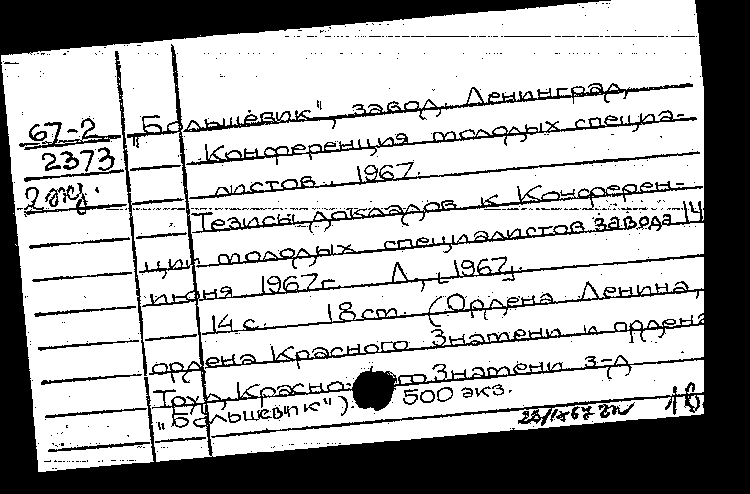 67-2
2373
2 экз.
„Большевик", завод. Ленинград.
Конференция молодых специа-
листов. 1967.
Тезисы докладов к Конферен-
ции молодых специалистов завода 14
июня 1967г. Л., [1967].
14 с. 18 см. (Ордена Ленина,
ордена Красного Знамени и ордена
Труд. Красно го Знамени з-д
„Большевик"). 500 экз.